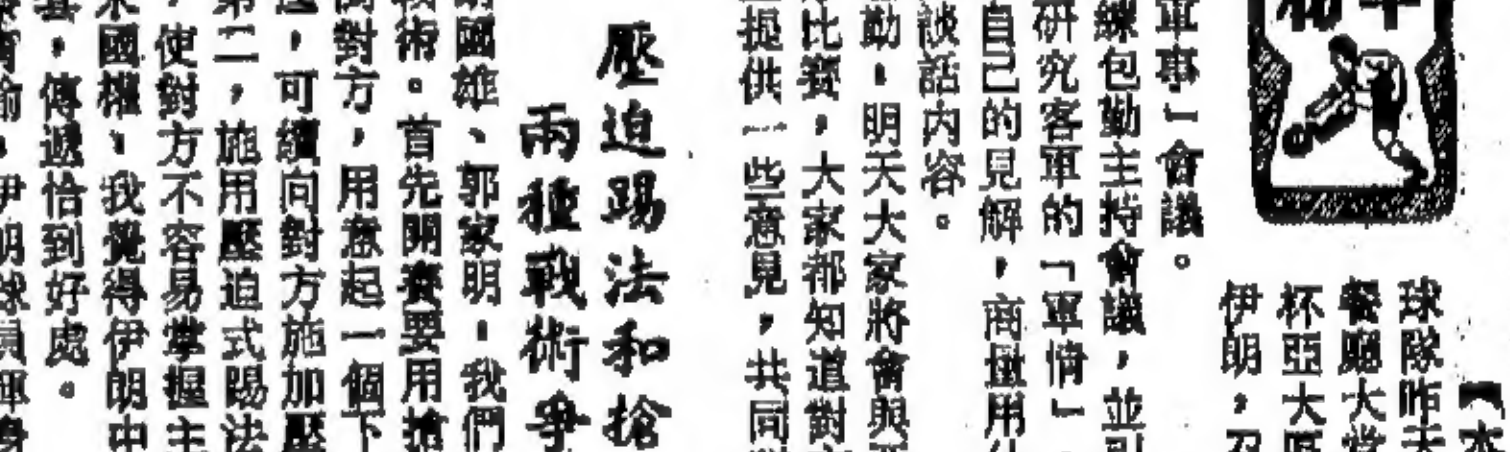 【本
球隊昨天
餐廳大堂
杯亞大區
伊朗，召
軍事」會議。
練包勤主持會議，並引
研究客軍的「軍情」，
自己的見解，商量用什
談話內容。
勤：明天大家將會與
比賽，大家都知道對
提供一些意見，共同
壓迫踢法和搶
兩種戰術爭
國雄、郭家明：我們
術。首先開賽要用搶
對方，用意起一個下
，可續向對方施加壓
第二，施用壓迫式踢法
，使對方不容易掌握主
國權：我覺得伊朗中
，傳遞恰到好處。
，伊朗球員渾身